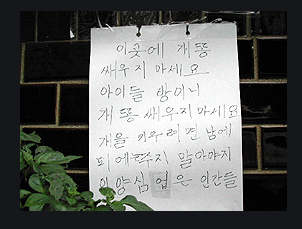 이곳에 개똥
싸우지 마세요
아이들 방이니
개똥 싸우지 마세요
개을 키우려면 남에
피에주지 말아야지
양심 업은 인간들